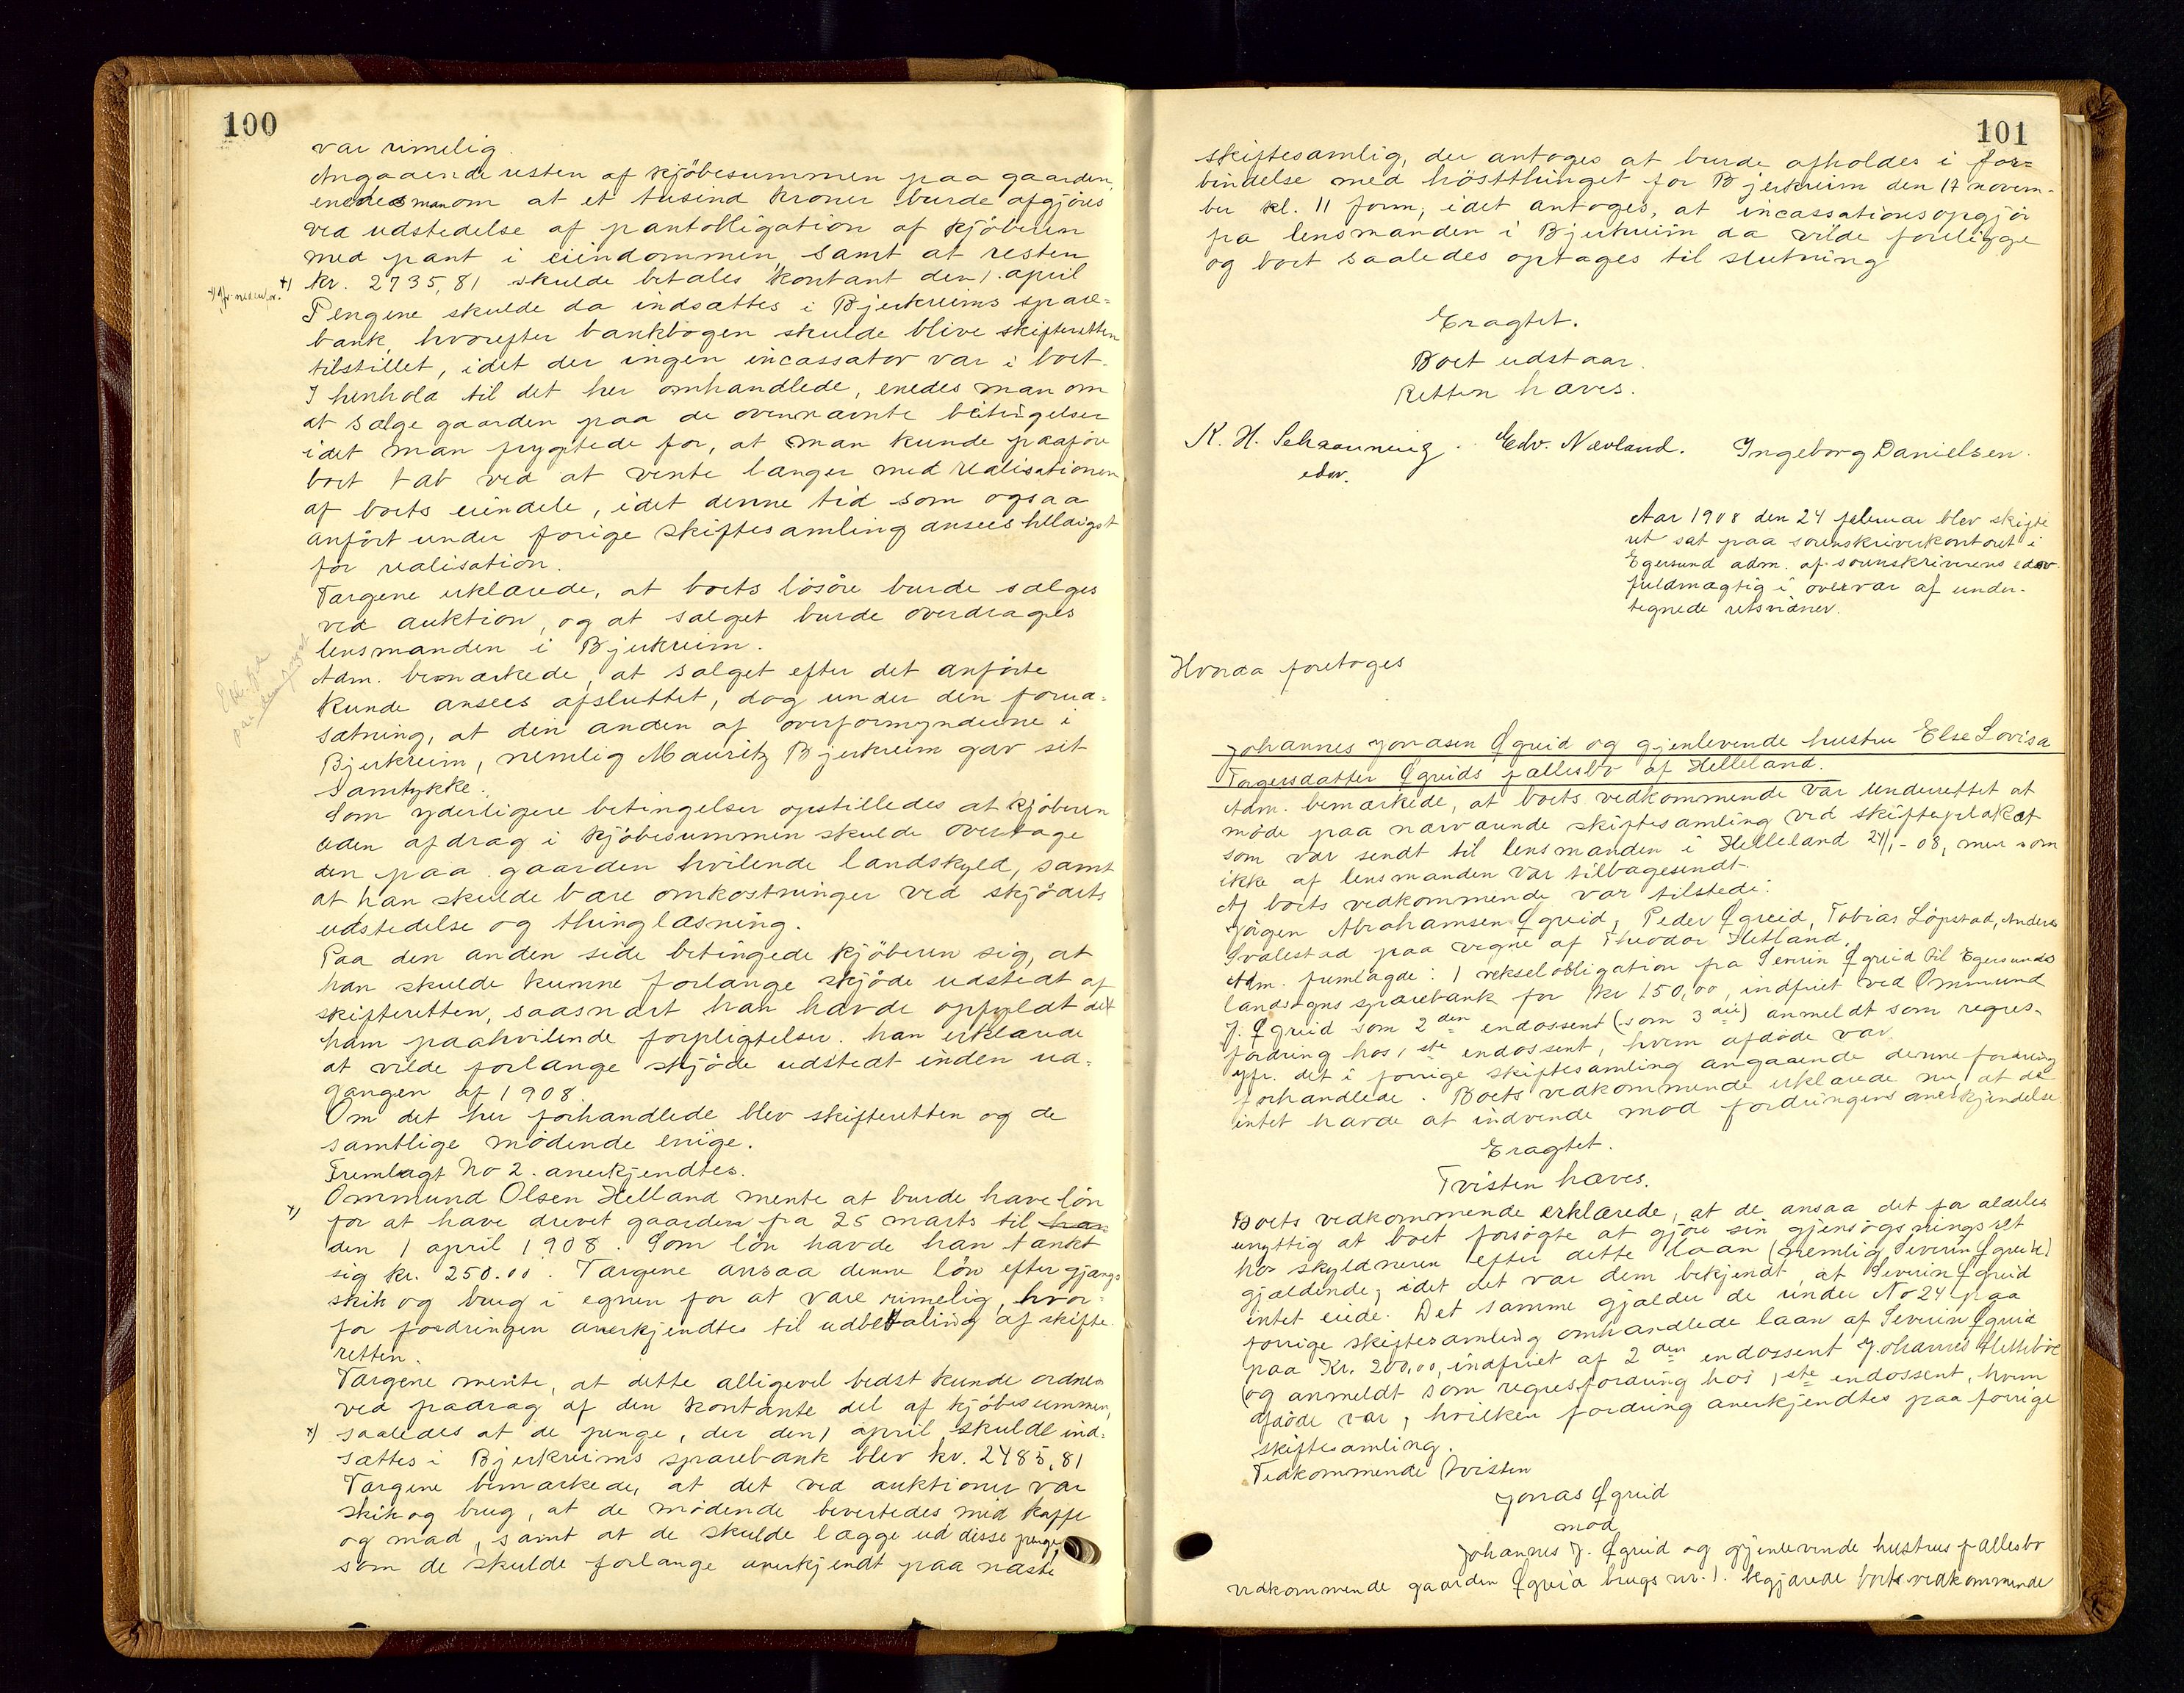 100
var rimelig.
Angaaende resten af kjöbesummen paa gaarden,
enedes man om at et tusind kroner burde afgjöres
ved udstedelse af pantobligation af kjöberen
med pant i eiendommen, samt at resten
x) jfr. nedenfor. x) kr. 2735,81 skulde betales kontant den 1. april
Pengene skulde da indsættes i Bjerkreims spare-
bank, hvorefter bankbogen skulde blive skifteretten
tilstillet, idet der ingen incassator var i boet.
I henhold til det her omhandlede, enedes man om
at sælge gaarden paa de ovennævnte betingelser
idet man frygtede for, at man kunde paaföre
boet tab ved at vente længer med realisationen
af boets eiendele, idet denne tid som ogsaa
anfört under forige skiftesamling ansees heldigst
for realisation.
Værgene erklærede, at boets lösöre burde sælges
ved auktion, og at salget burde overdrages
lensmanden i Bjerkreim.
Adm. bemærkede, at salget efter det anförte
kunde ansees afsluttet, dog under den forud-
sætning, at den anden af overformynderne i
Bjerkreim, nemlig Mauritz Bjerkreim gav sit
samtykke.
Som yderligere betingelser opstilledes at kjöberen
uden afdrag i kjöbesummen skulde overtage
den paa gaarden hvilende landskyld, samt
at han skulde bære omkostninger ved skjödets
udstedelse og thinglæsning.
Paa den anden side betingede kjöberen sig, at
han skulde kunne forlange skjöde udstedt af
skifteretten, saasnart han havde opfyldt det
ham paahvilende forpligtelser. han erklærede
at vilde forlange skjöde udstedt inden ud-
gangen af 1908.
Om det her forhandlede blev skifteretten og de
samtlige mödende enige.
Fremlagt No 2. anerkjendtes.
x) Ommund Olsen Helland mente at burde have lön
for at have drevet gaarden fra 25 marts til han
den 1 april 1908. Som lön havde han tænkt
sig kr. 250.00. Værgene ansaa denne lön efter gjængs
skik og brug i egnen for at være rimelig, hvor-
for fordringen anerkjendtes til udbetaling af skifte-
retten.
Værgene mente, at dette alligevel bedst kunde ordnes
ved fradrag af den kontante del af kjöbesummen,
x) saaledes at de penge, der den 1 april skulde ind-
sættes i Bjerkreims sparebank blev kr. 2485,81
Værgene bemærkede, at det ved auktioner var
skik og brug, at de mödende bevertedes med kaffe
og mad, samt at de skulde lægge ud disse penge,
som de skulde forlange anerkjendt paa næste
101
skiftesamlig, der antoges at burde afholdes i for=
bindelse med höstthinget for Bjerkreim den 17 novem-
ber kl. 11 form, idet antoges, at incassationsopgjör
fra lensmanden i Bjerkreim da vilde foreligge
og boet saaledes optages til slutning
Eragtet.
Boet udstaar.
Retten hæves.
K. H. Schaanning. Edv. Nævland. Ingeborg Danielsen.
edsv.
Aar 1908 den 24 februar blev skifte
ret sat paa sorenskriverkontoret i
Egersund adm. af sorenskriverens edsv.
fuldmægtig i overvær af under-
tegnede retsvidner.
Hvorda foretoges
Johannes Jonasen Øgreid og gjenlevende hustru Else Lovisa
Torgersdatter Øgreids fællesbo af Helleland.
Adm. bemærkede, at boets vedkommende var underrettet at
möde paa nærværende skiftesamling ved skifteplakat
som var sendt til lensmanden i Helleland 24/1-08, men som
ikke af lensmanden var tilbagesendt.
Af boets vedkommende var tilstede:
Jörgen Abrahamsen Øgreid, Peder Øgreid, Tobias Löpstad, Anders
Svalestad paa vegne af Theodor Hetland.
Adm. fremlagde: 1 vekselobligation fra Severin Øgreid til Egersunds
landsogns sparebank for kr 150,00, indfriet ved Ommund
J. Øgreid som 2den endossent (som 3die) anmeldt som regres-
fordring hos 1ste endossent, hvem afdöde var.
Jfr. det i forrige skiftesamling angaaende denne fordring
forhandlede. Boets vedkommende erklærede nu, at de
intet havde at indvende mod fordringens anerkjendelse
Eragtet.
Tvisten hæves.
Boets vedkommende erklærede, at de ansaa det for aldeles
unyttig at boet forsögte at gjöre sin gjensögsningsret
hos skyldneren efter dette laan (nemlig Severin Øgreid)
gjældende, idet det var dem bekjendt, at Severin Øgreid
intet eiede. Det samme gjælder de under No 24 paa
forrige skiftesamling omhandlede laan af Severin Øgreid
paa Kr. 200,00, indfriet af 2den endossent Johannes Hetleböe
(og anmeldt som regresfordring hos 1ste endossent, hvem
afdöde var, hvilken fordring anerkjendtes paa forrige
skiftesamling.
Vedkommende tvisten
Jonas Øgreid
mod
Johannes J. Øgreid og gjenlevende hustrus fællesbo
vedkommende gaarden Øgreid brugs nr. 1. begjærede boets vedkommende